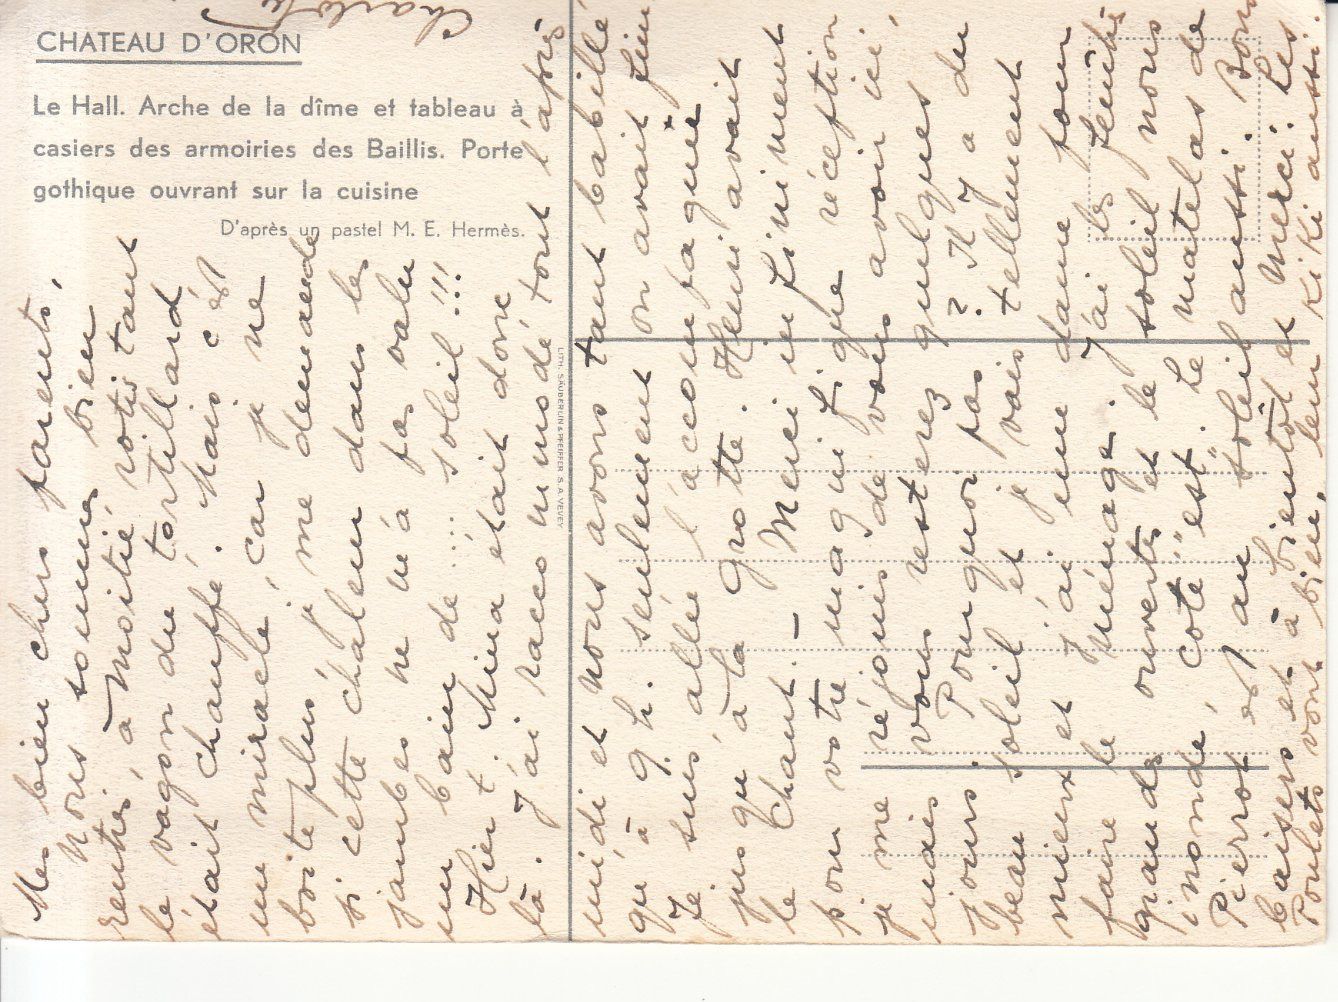 CHATEAU D'ORON
Le Hall. Arche de la dîme et tableau à
casiers des armoiries des Baillis. Porte
gothique ouvrant sur la cuisine
D'après un pastel M. E. Hermès.
LITH. SÄUBERLIN & PFEIFFER S. A. VEVEY
Mes bien chers parents,
Nous sommes bien
rentrés, à moitié rotis tant
le vagon du tortillard
était chauffé. Mais c'est
un miracle, car je ne
boite plus, je me demande
si cette chaleur dans les
jambes ne m'a pas valu
un bain de ... soleil !!!
Hier t. Mina était donc
là. J'ai raccommodé tout l'après
midi et nous avons tant babillé
qu'à 9 h. seulement on avait fini
Je suis allée l'accompagner
jusqu'à la grotte. Henri avait
le chant. — Merci infiniment
pour votre magnifique réception
je me réjouis de vous avoir ici,
mais vous resterez quelques
jours. Pourquoi pas ? Il y a du
beau soleil et je vais tellement
mieux et j'ai une dame pour
faire le ménage. J'ai les fenêtres
grandes ouvertes et le soleil nous
inonde, côté "est". Le matelas de
Pierrot est au soleil aussi. Bons
baisers et à bientôt et merci. Les
Poulets vont bien, leur Kiki aussi.
Charlotte